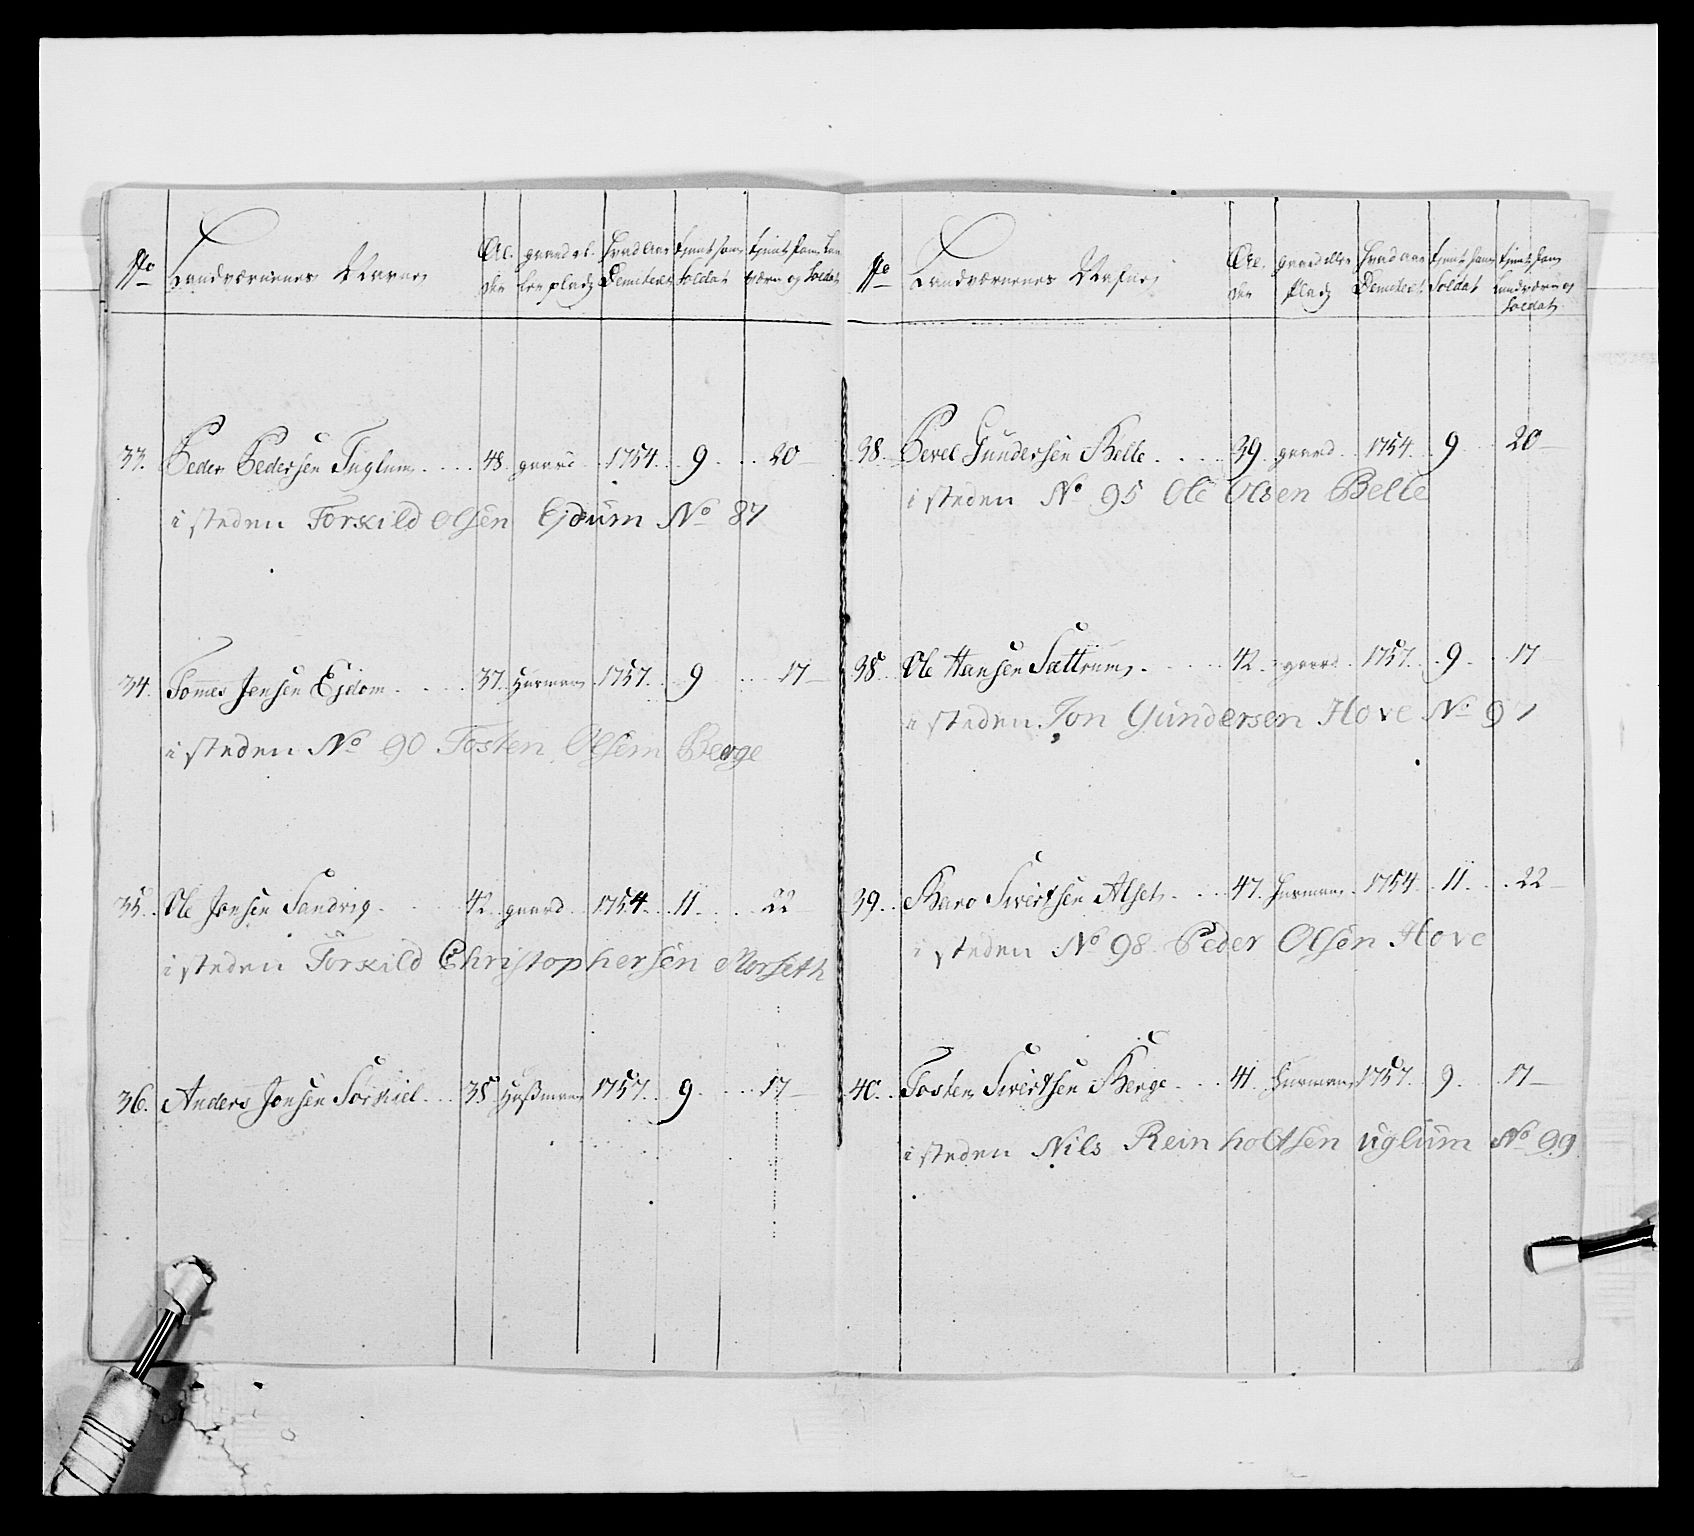 No Landværnenes Navne Al- gaard el- hvad aar tient som tient som Lan
der ler plads Demiteret Soldat værn og Soldat
33. Peder Pedersen Fuglum 48 gaard 1754 9 20
i steden Torkild Olsen Ejdum No 87
34. Tomes Jensen Ejdom 37 Husmand 1757 9 17
i steden No 90 Tosten Olsem Berge
35. Ole Jensen Sandvig 42 gaard 1754 11 22
i steden Torkild Christophersen Morseth
36. Anders Jonsen 38 Husmand 1757 9 17
No Landværnenes Nafne Al- gaard eller hvad aar tient som tient som
der Plads Demiteret Soldat Landværn og
Soldat
38. Pevel Gundersen Belle 39 gaard 1754 9 20
i steden No 95 Ole Olsen Belle
38 Ole Hansen Sættrum 42 gaard 1757 9 17
i steden Jon Gundersen Hove No 97
39. Sivertsen Alset 47 Husmand 1754 11 22
i steden No 98 Peder Olsen Hove
40. Tosten Sivertsen Berge 41 Husmand 1757 9 17
i steden Nils Reinholtsen uglum No 99